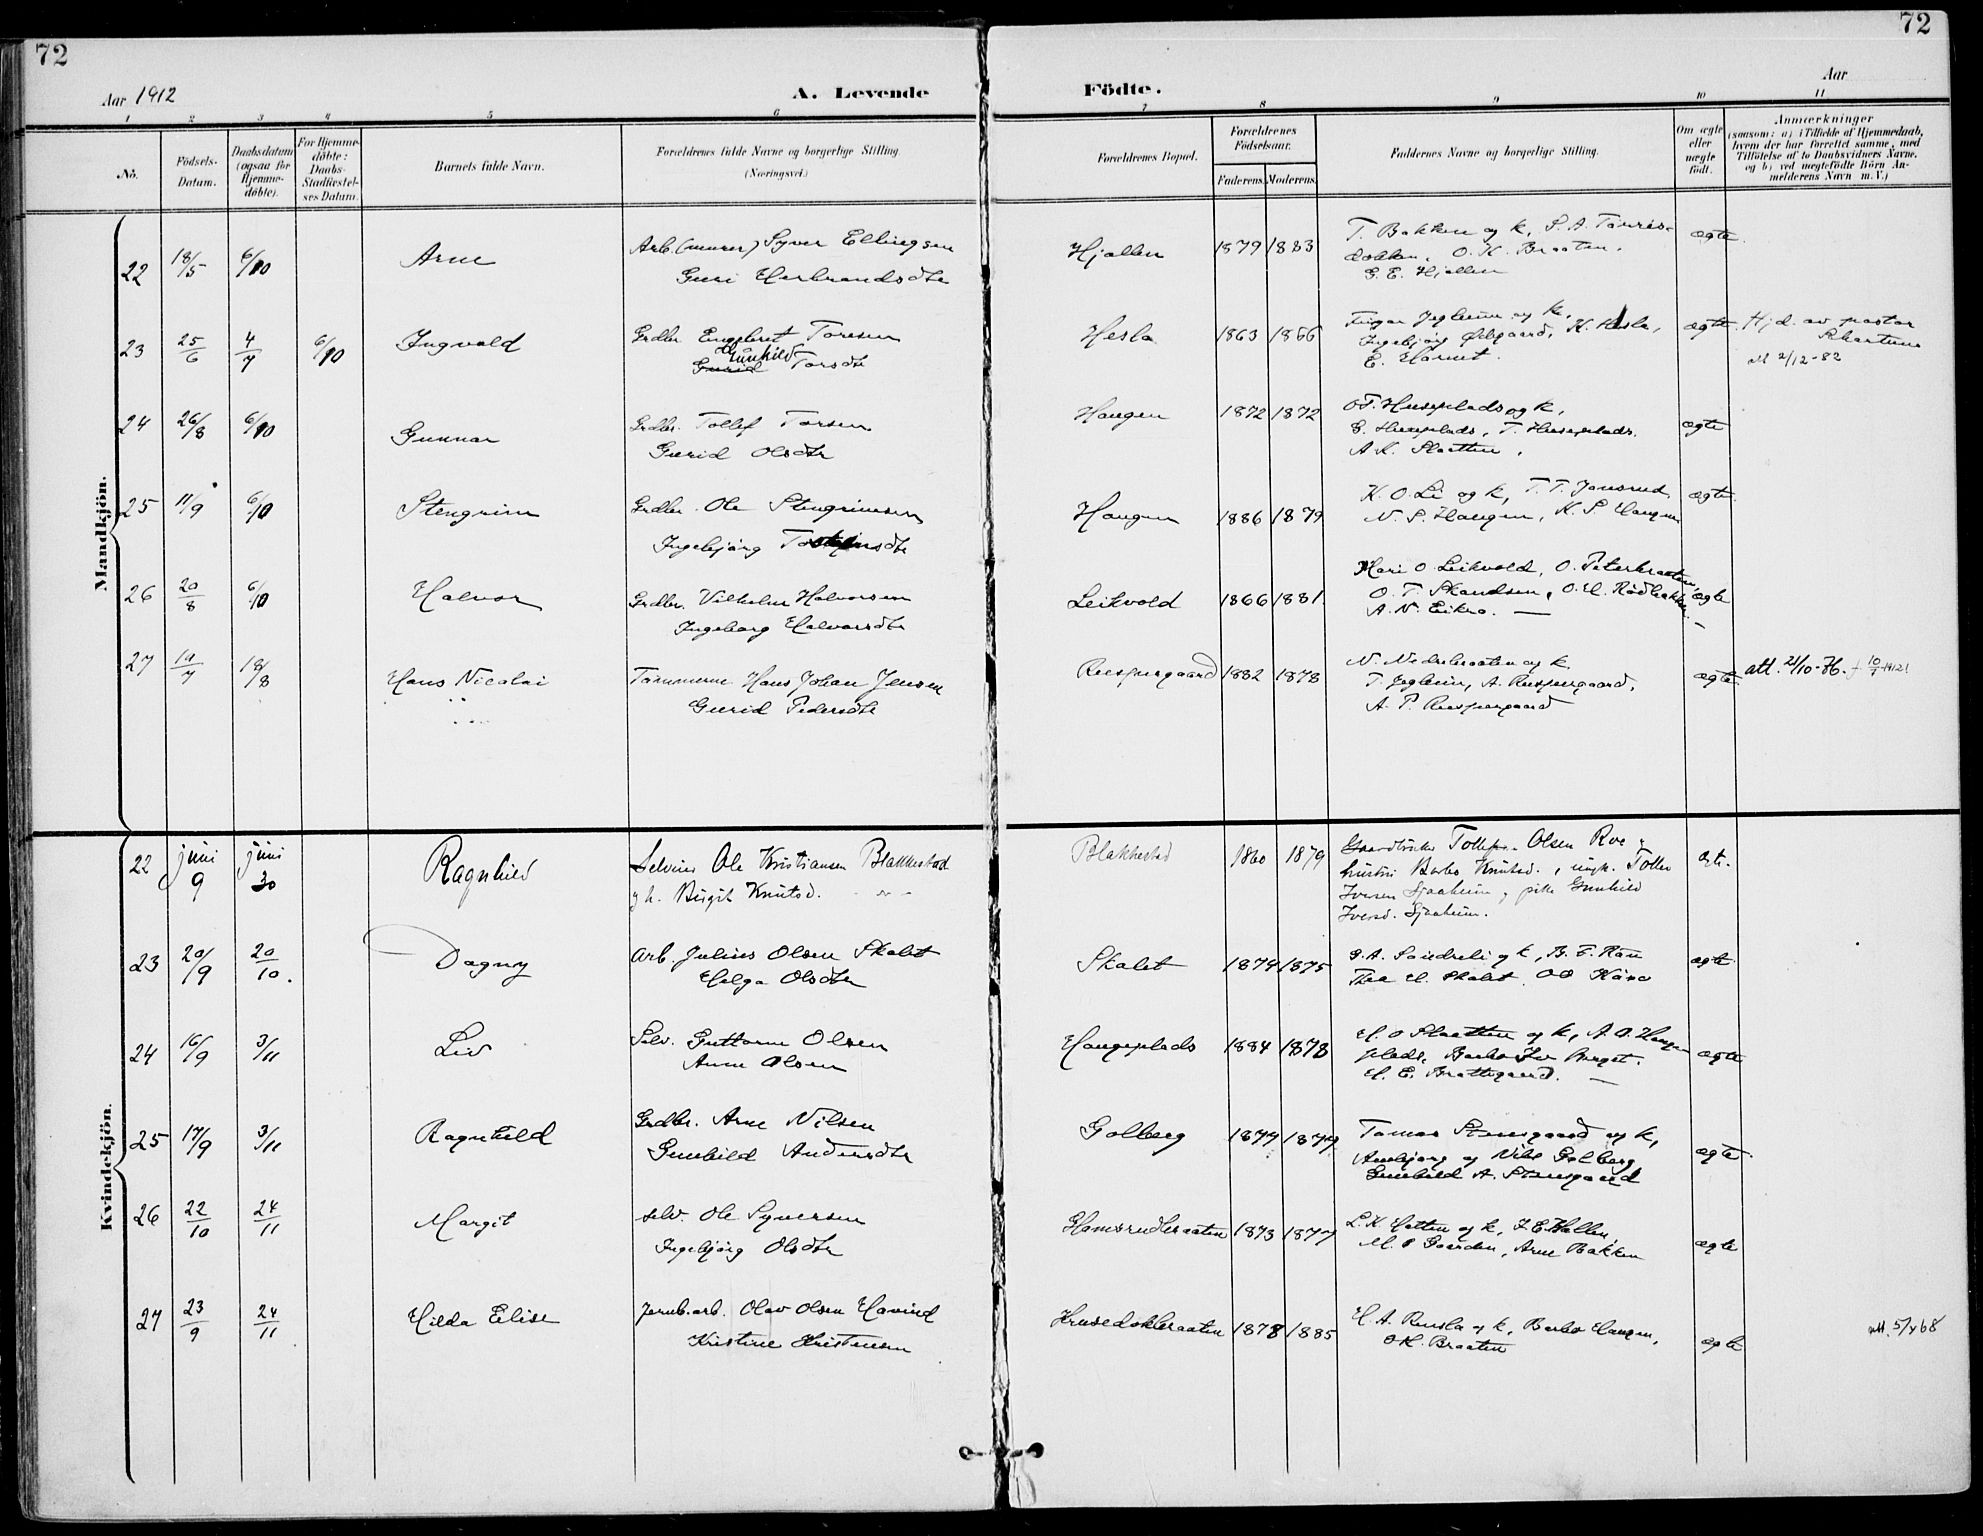 72
72
Aar 1912
A. Levende
Födte.
Aar
1 2 3 4 5 6 7 8 9 10 11
No.
Födsels-Datum.
Daabsdatum (ogsaa for Hjemme-döbte).
For Hjemme-döbte: Daabs-Stadfæstel-ses Datum.
Barnets fulde Navn.
Forældrenes fulde Navne og borgerlige Stilling. (Næringsvei.)
Forældrenes Bopæl.
Forældrenes Födselsaar.
Faderens. Moderens.
Faddernes Navne og borgerlige Stilling.
Om ægte eller uægte födt.
Anmærkninger
(saasom: a) i Tilfælde af Hjemmedaab, hvem der har forrettet samme, med Tilföielse af to Daabsvidners Navne, og b) ved uægtefödte Börn An-melderens Navn m. V.)
Mandkjön.
22 18/5 6/10 Arne Arb. (murer) Syver Ellingsen Hjallen 1879 1883 T. Bakken og k, S. A. Törris- ægte
Guri Herbrandsdtr dokken, O. K. Braaten,
G. E. Hjallen
23 25/6 4/7 6/10 Ingvald Grdbr. Engebret Toresen Hesla 1863 1866 Jegleim og k, ægte Hjd. av pastor
Gunhild
Gurid Torsdtr Ingebjörg, K. Hesla,
E.
att 2/12-82
24 26/8 6/10 Gunnar Grdbr. Tollef Torsen Haugen 1872 1872 O.T. Huseplads og k, ægte
Gurid Olsdtr E. Huseplads, T. Huseplads,
A. K. Slaatten,
25 11/9 6/10 Stengrim Grdbr. Ole Stengrimsen Haugen 1886 1879 K. O. Li og k, T. T. Jansrud ægte
Ingebjörg N. S. Haugen, K. S. Haugen
26 20/8 6/10 Halvor Grdbr. Vilhelm Halvorsen Leikvold 1866 1881. Mari O. Leikvold, O. Peterbraaten, ægte
Ingeborg Halvorsdtr O. T. Skandsen, O. H. Rödbakken
A. N. Eikro.
27 19/7 18/8 Hans Nicolai Tömmerm Hans Johan Jensen Ruspergaard 1882 1878 N. Nedrebraaten og k. ægte att. 21/10-76.
Gurid Pedersdtr T. Jegleim, A. Ruspergaard,
A. P. Ruspergaard
Kvindekjön.
22 juni 9 juni 30 Ragnhild Selveier Ole Kristiansen Blakkestad Blakkestad 1860 1879 Gaardbruker Tollef Olsen Roe og ægt.
og h. Birgit Knutsd. hustru Barbo Knutsd., ungk. Tollef
Iversen Sjaaheim, pike Gunhild
Iversd. Sjaaheim.
23 20/9 20/10. Dagny Arb. Julius Olsen Skalet Skalet 1874 1875 G. A. Sandreli og k, B. E. ægte
Helga Olsdtr Thea H. Skalet.
24 16/9 3/11 Liv Selv. Guttorm Olsen Haugeplads 1884 1878 H. O. Slaatten og k, A. O. Haugen ægte
Anne Olsen plads, Barbo Berget.
H. E. Brattegaard.
25 17/9 3/11 Ragnhild Grdbr. Arne Nilsen Golberg 1877 1879 Tomas Stensgaard og k, ægte
Gunhild Andersdtr og Nils Golberg
Gunhild A. Stensgaard
26 22/10 24/11 Margit selv. Ole Syversen Hamsrudbraaten 1873 1877 L. K. Hatten og k, ægte
Ingebjörg Olsdtr Gaarden, Arne Bakken
27 23/9 24/11 Hilda Elise Jernb.arb. Olav Olsen Havind Krusedokbraaten 1878 1885 H. A. Rusla og k, Barbo Haugen, ægte att. 5/4 68
Kristine Kristensen O K. Braaten